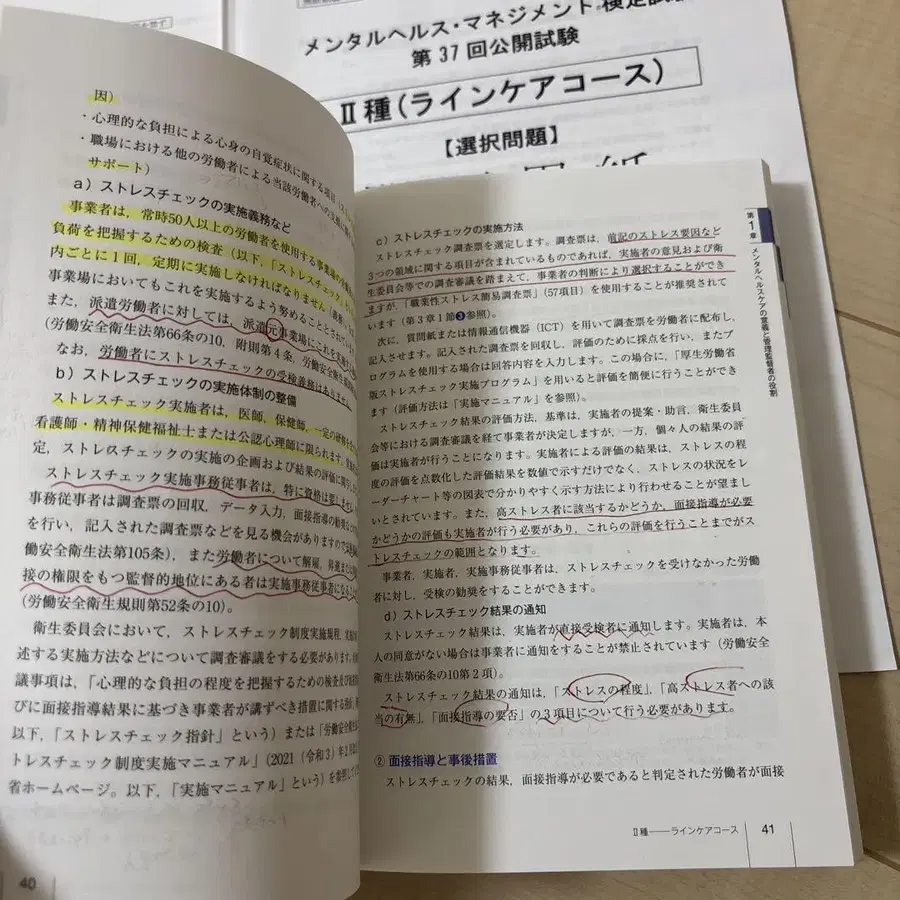 メンタルヘルス・マネジメント 検定試験
第37回公開試験
Ⅱ種(ラインケアコース)
【選択問題】
因)
・心理的な負担による心身の自覚症状に関する項目
・職場における他の労働者による当該労働者への支援に
サポート)
a)ストレスチェックの実施義務など
事業者は,常時50人以上の労働者を使用する事業場の
負荷を把握するための検査(以下,「ストレスチェック」
内ごとに1回,定期に実施しなければなりません
事業場においてもこれを実施するよう努めることとされ
また,派遣労働者に対しては,派遣元事業場にこれを実施
(労働安全衛生法第66条の10,附則第4条,労働安全衛生
なお,労働者にストレスチェックの受検義務はありません
b)ストレスチェックの実施体制の整備
ストレスチェック実施者は,医師,保健師,一定の研修を
看護師・精神保健福祉士または公認心理師に限られます。
定,ストレスチェックの実施の企画および結果の評価に関
ストレスチェック実施事務従事者は,特に資格は要しません
事務従事者は調査票の回収,データ入力,面接指導の勧奨
を行い,記入された調査票などを見る機会がありますので
働安全衛生法第105条),また労働者について解雇,昇進また
接の権限をもつ監督的地位にある者は実施事務従事者になること
(労働安全衛生規則第52条の10)。
衛生委員会において,ストレスチェック制度実施規程,
述する実施方法などについて調査審議をする必要があります。
議事項は,「心理的な負担の程度を把握するための検査及び
びに面接指導結果に基づき事業者が講ずべき措置に関する指
以下,「ストレスチェック指針」という)または「労働安全衛生
トレスチェック制度実施マニュアル」(2021(令和3)年2月
省ホームページ。以下,「実施マニュアル」という)を参照して
40
c)ストレスチェックの実施方法
ストレスチェック調査票を選定します。調査票は,前記のストレス要因など
3つの領域に関する項目が含まれているものであれば,実施者の意見および衛
生委員会等での調査審議を踏まえて,事業者の判断により選択することができ
ますが,「職業性ストレス簡易調査票」(57項目)を使用することが推奨されて
います(第3章1節❸参照)。
次に,質問紙または情報通信機器(ICT)を用いて調査票を労働者に配布し,
記入させます。記入された調査票を回収し,評価のために採点を行い,またプ
ログラムを使用する場合は回答内容を入力します。この場合に,「厚生労働省
版ストレスチェック実施プログラム」を用いると評価を簡便に行うことができ
ます(評価方法は「実施マニュアル」を参照)。
ストレスチェック結果の評価方法,基準は,実施者の提案・助言,衛生委員
会等における調査審議を経て事業者が決定しますが,一方,個々人の結果の評
価は実施者が行うことになります。実施者による評価の結果は,ストレスの程
度の評価を点数化した評価結果を数値で示すだけでなく,ストレスの状況をレ
ーダーチャート等の図表で分かりやすく示す方法により行わせることが望まし
いとされています。また,高ストレス者に該当するかどうか,面接指導が必要
かどうかの評価も実施者が行う必要があり,これらの評価を行うことまでがス
トレスチェックの範囲となります。
事業者,実施者,実施事務従事者は,ストレスチェックを受けなかった労働
者に対し,受検の勧奨をすることができます。
d)ストレスチェック結果の通知
ストレスチェック結果は,実施者が直接受検者に通知します。実施者は,本
人の同意がない場合は事業者に通知をすることが禁止されています(労働安全
衛生法第66条の10第2項)。
ストレスチェック結果の通知は,「ストレスの程度」,「高ストレス者への該
当の有無」,「面接指導の要否」の3項目について行う必要があります。
② 面接指導と事後措置
ストレスチェックの結果,面接指導が必要であると判定された労働者が面接
Ⅱ種――ラインケアコース 41
第1章
メンタルヘルスケアの意義と管理監督者の役割